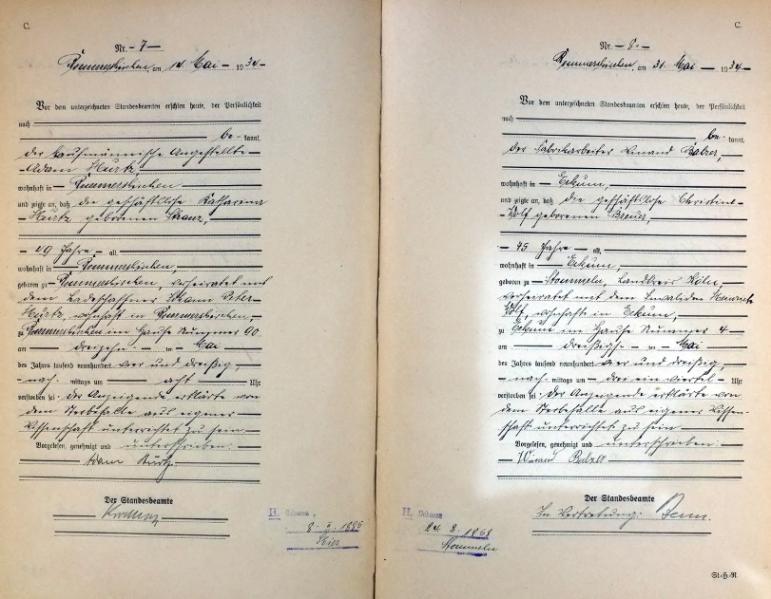 C.
Nr. - 7 -
Rommerskirchen, am 14 Mai - 1934 -
Vor dem unterzeichneten Standesbeamten erschien heute, der Persönlichkeit
nach
be- kannt,
der kaufmännische Angestellte -
Adam Kürtz,
wohnhaft in - Rommerskirchen
und zeigte an, daß die geschäftliche Katharina
Kürtz geborenen
- 49 Jahre - alt,
wohnhaft in Rommerskirchen,
geboren zu Rommerskirchen, verheiratet mit
dem Ladeschaffner Johann Peter
Kürtz, wohnhaft in Rommerskirchen,
zu Rommerskirchen im Hause Nummer 90
am dreizehn - ten Mai
des Jahres tausend neunhundert vier und dreißig -
- nach - mittags um acht Uhr
verstorben sei. Der Anzeigende erklärte von
dem Sterbefalle aus eigener
Wissenschaft unterrichtet zu sein.
Vorgelesen, genehmigt und unterschrieben.
Adam Kürtz
Der Standesbeamte
H. Geboren,
1885
C.
Nr. - 8 -
Rommerskirchen, am 31 Mai - 1934 -
Vor dem unterzeichneten Standesbeamten erschien heute, der Persönlichkeit
nach
be- kannt,
der Fabrikarbeiter Winand
wohnhaft in Eckum,
und zeigte an, daß die geschäftliche Christine
Wolf geborenen
- 75 Jahre - alt,
wohnhaft in Eckum,
geboren zu Stommeln, Landkreis Köln,
verheiratet mit dem Invaliden Heinrich
Wolf, wohnhaft in Eckum,
zu Eckum im Hause Nummer 4
am dreißigs - ten Mai
des Jahres tausend neunhundert vier und dreißig,
- nach - mittags um drei ein viertel - Uhr
verstorben sei. Der Anzeigende erklärte von
dem Sterbefalle aus eigener Wissen-
schaft unterrichtet zu sein
Vorgelesen, genehmigt und unterschrieben.
Winand
Der Standesbeamte
In Vertretung:
H. Geboren
24 8
Stommeln
St-H-R